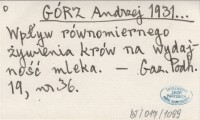 GÓRZ Andrzej 1931...
Wpływ równomiernego
żywienia krów na wydaj-
ność mleka. — Gaz. Podh.
19, nr 36.